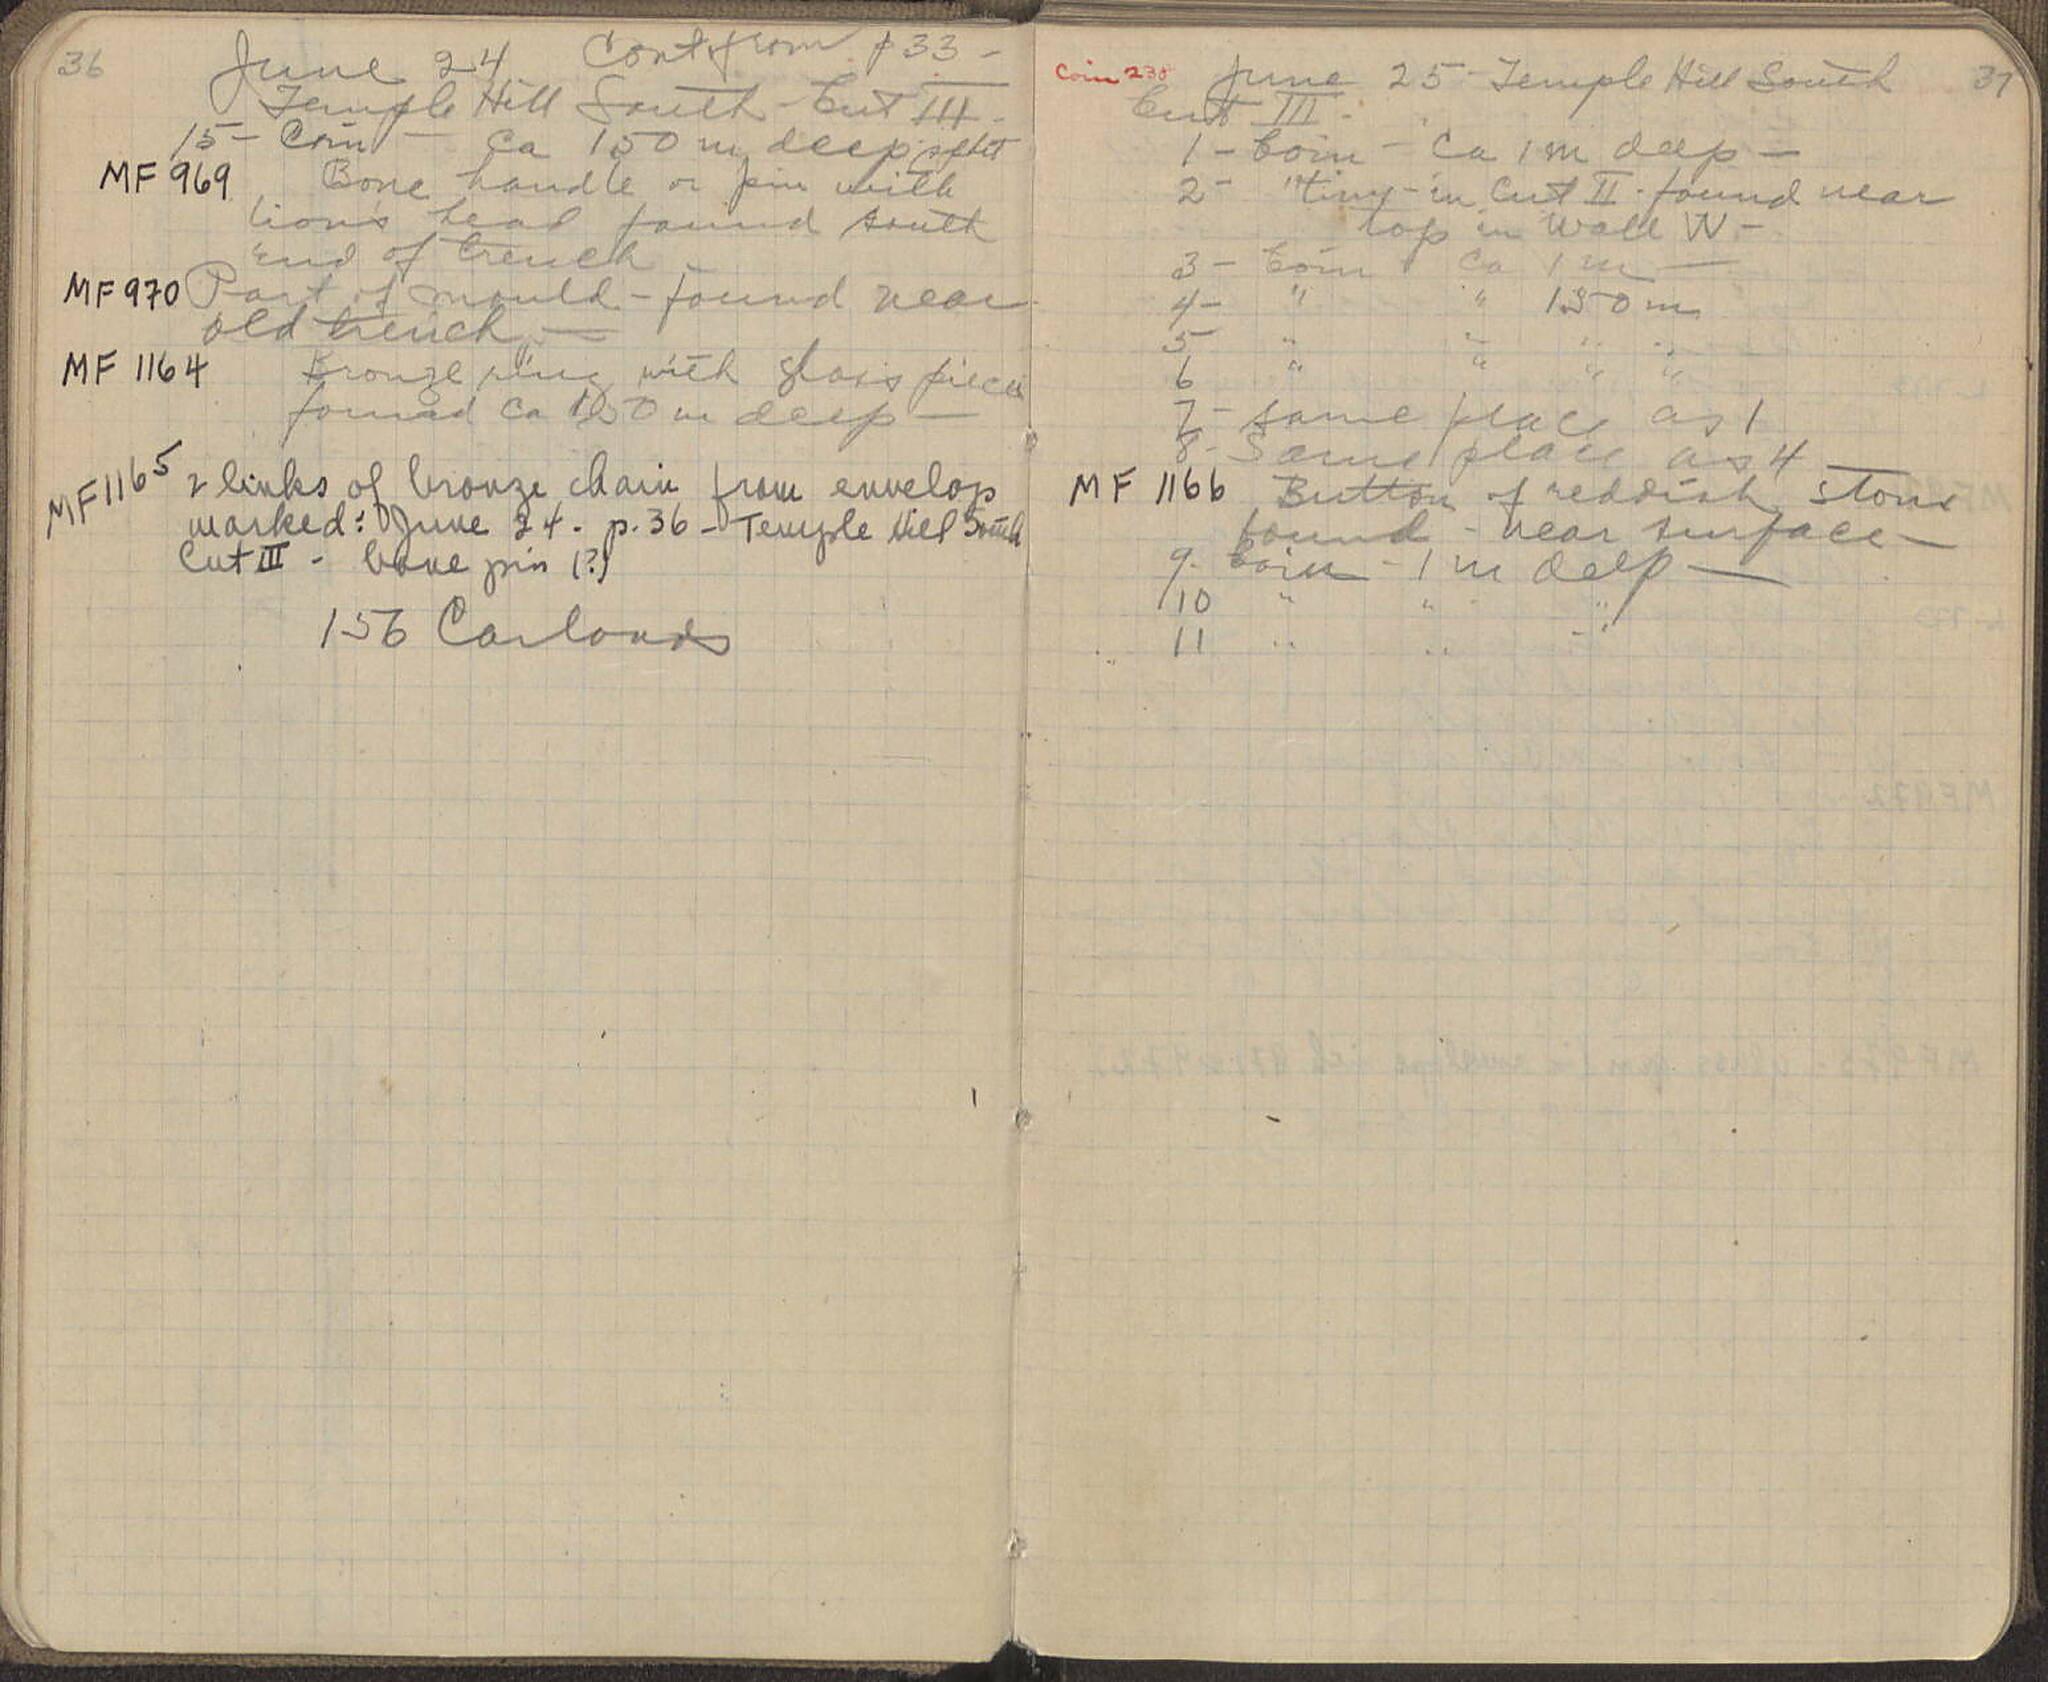 36
June 24 Cont from p 33 -
Temple Hill South - Cut III -
15 - Coin - Ca 150 m deep
MF 969 Bone handle or pin with
lion's head found south
end of trench -
MF 970 Part of mould - found near
old trench -
MF 1164 Bronze ring with glass piece
found ca 150 m deep -
MF 1165 2 links of bronze chain from envelop
marked: June 24 - p. 36 - Temple Hill South
Cut III - bone pin (?)
156 Carloads
Coin 230 June 25 - Temple Hill South 37
Cut III -
1 - Coin - Ca 1 m deep -
2 - " tiny - in Cut II - found near
top in Wall W -
3 - Coin Ca 1 m -
4 - " " 150 m
5 " " " "
6 " " " "
7 - same place as 1
8 - Same place as 4
MF 1166 Button of reddish stone
found - near surface -
9 - Coin - 1 m deep -
10 " " "
11 " " "